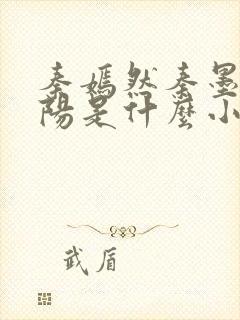 秦嫣然秦墨
陽是什麼小
武盾